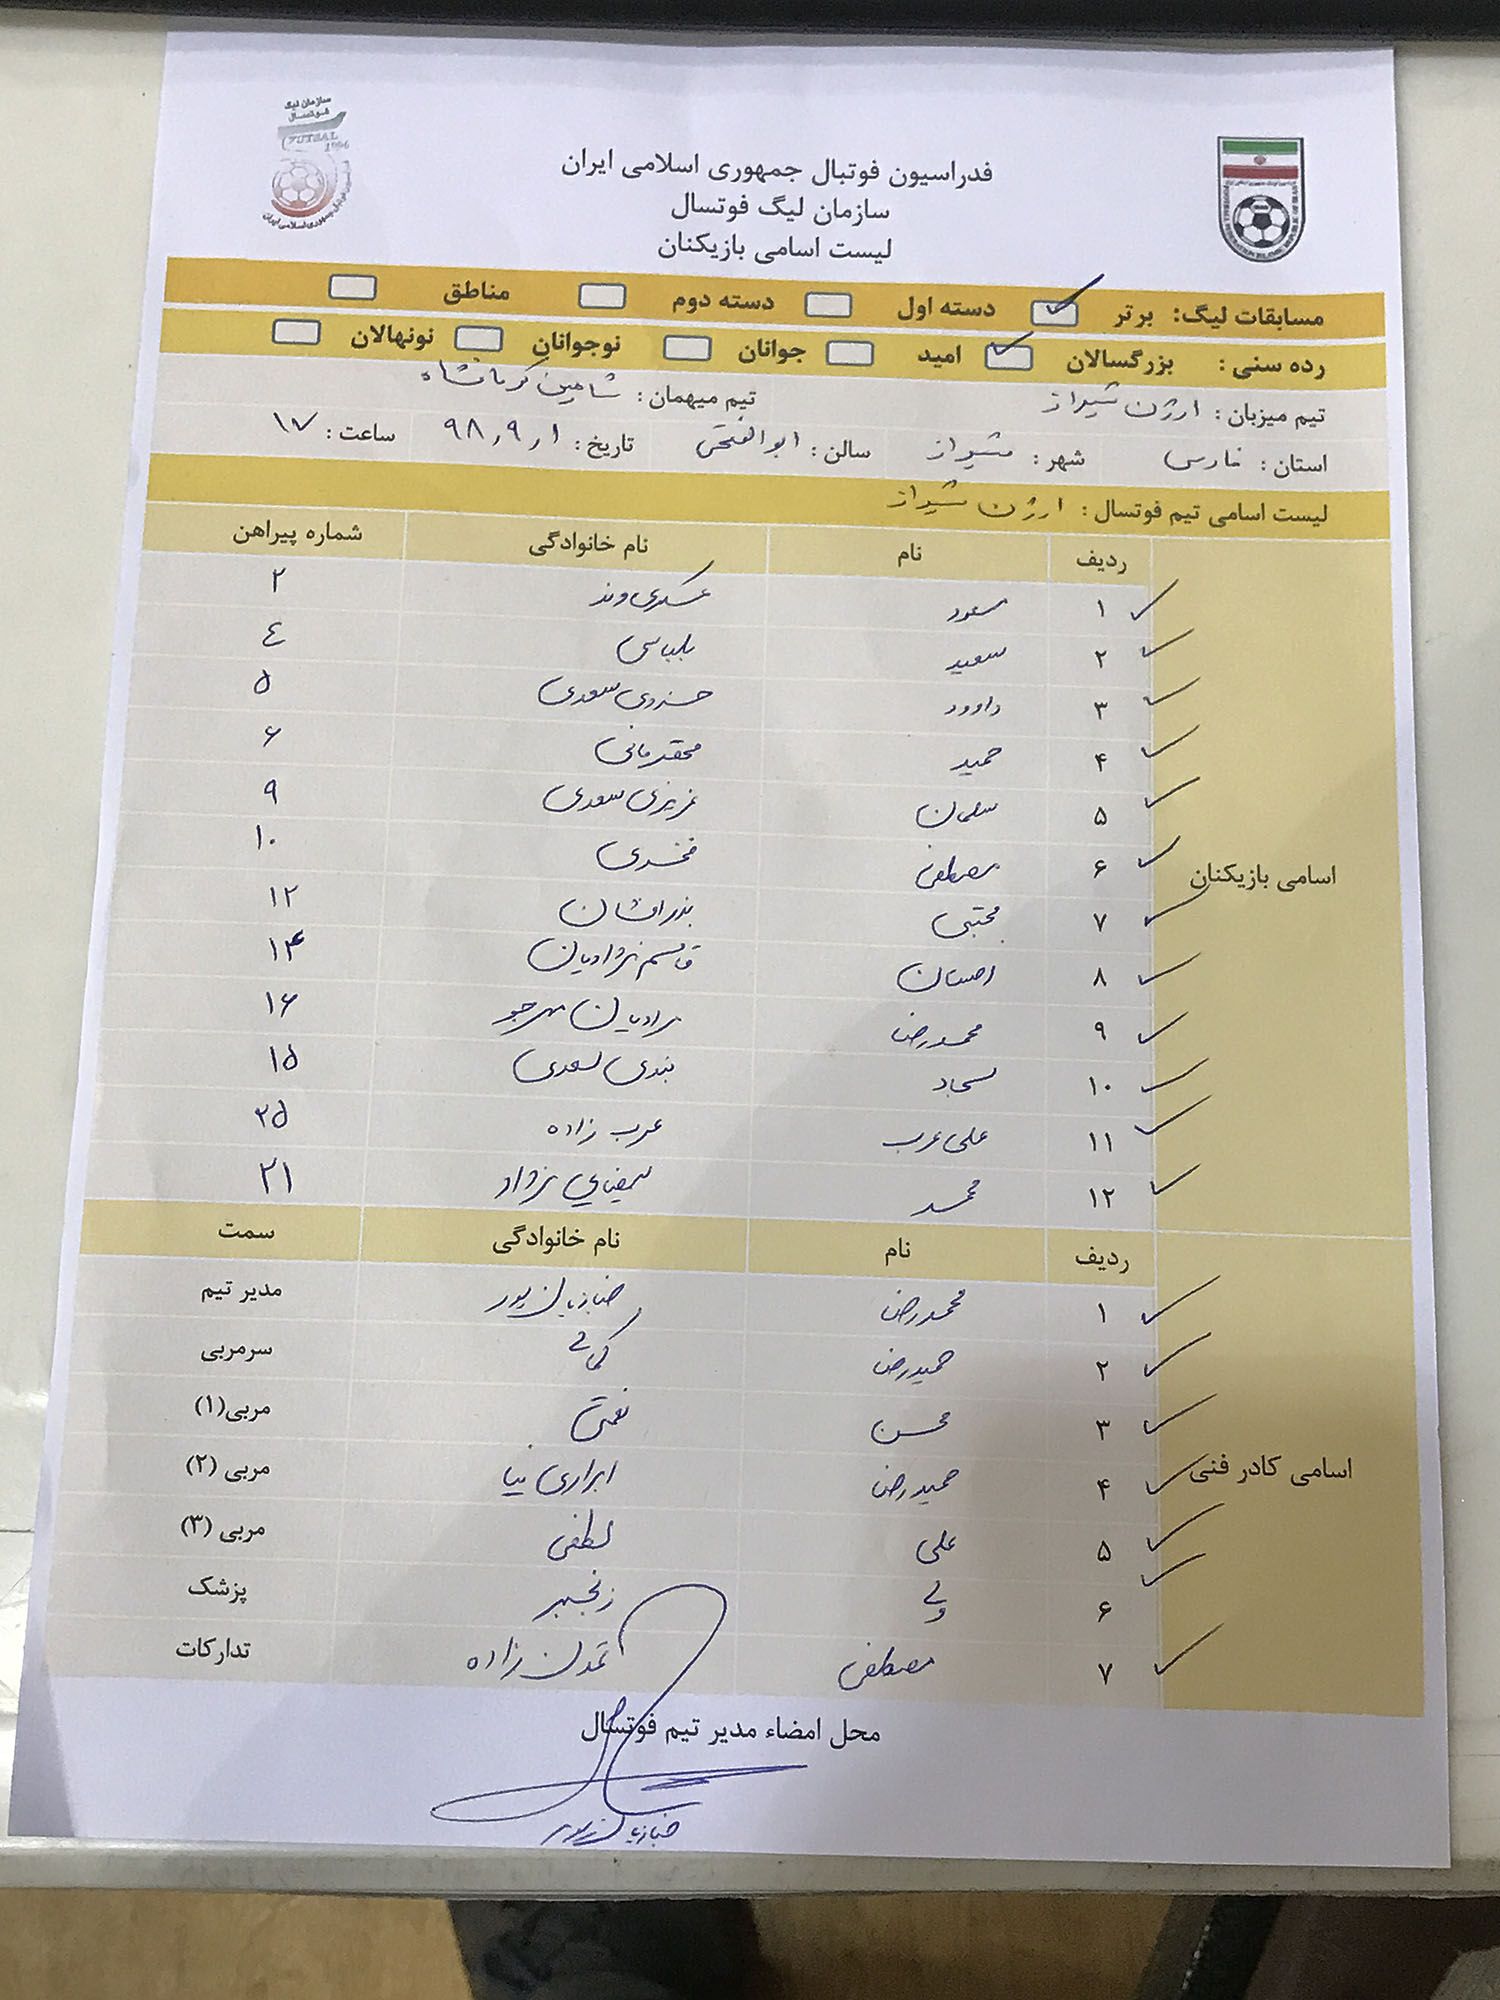 سازمان لیگ
فوتسال
FUTSAL
فدراسیون فوتبال جمهوری اسلامی ایران
سازمان لیگ فوتسال
لیست اسامی بازیکنان
مسابقات لیگ: برتر دسته اول دسته دوم مناطق
رده سنی : بزرگسالان امید جوانان نوجوانان نونهالان
تیم میزبان : ارژن شیراز تیم میهمان : شاهین کرمانشاه
استان : فارس شهر : شیراز سالن : ابوالفتحی تاریخ : ۹۸٫۹٫۱ ساعت : ۱۷
لیست اسامی تیم فوتسال : ارژن شیراز
ردیف نام نام خانوادگی شماره پیراهن
۱ مسعود عسکری وند ۲
۲ سعید بلباسی ٤
۳ داوود خسروی سعدی ۵
۴ حمید ۶
۵ سلمان عزیزی سعدی ۹
۶ مصطفی ۱۰
اسامی بازیکنان
۷ مجتبی بذرافشان ۱۲
۸ احسان قاسم نژادیان ۱۴
۹ محمدرضا مهرجو ۱۶
۱۰ سجاد سعدی ۱۵
۱۱ علی عرب عرب زاده ۲۵
۱۲ محمد نژاد ۲۱
ردیف نام نام خانوادگی سمت
۱ محمدرضا خبازیان پور مدیر تیم
۲ حمیدرضا کمالی سرمربی
۳ محسن نعمتی مربی(۱)
اسامی کادر فنی
۴ حمیدرضا ابراری نیا مربی (۲)
۵ علی لطفی مربی (۳)
۶ ولی رنجبر پزشک
۷ مصطفی تمدن زاده تدارکات
محل امضاء مدیر تیم فوتسال
خبازیان پور